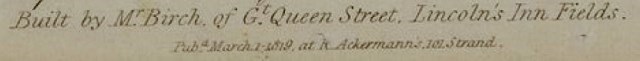 Built by Mr. Birch, of Gt. Queen Street, Lincoln's Inn Fields.
Pub.d March 1-1819, at R. Ackermann's, 101 Strand.